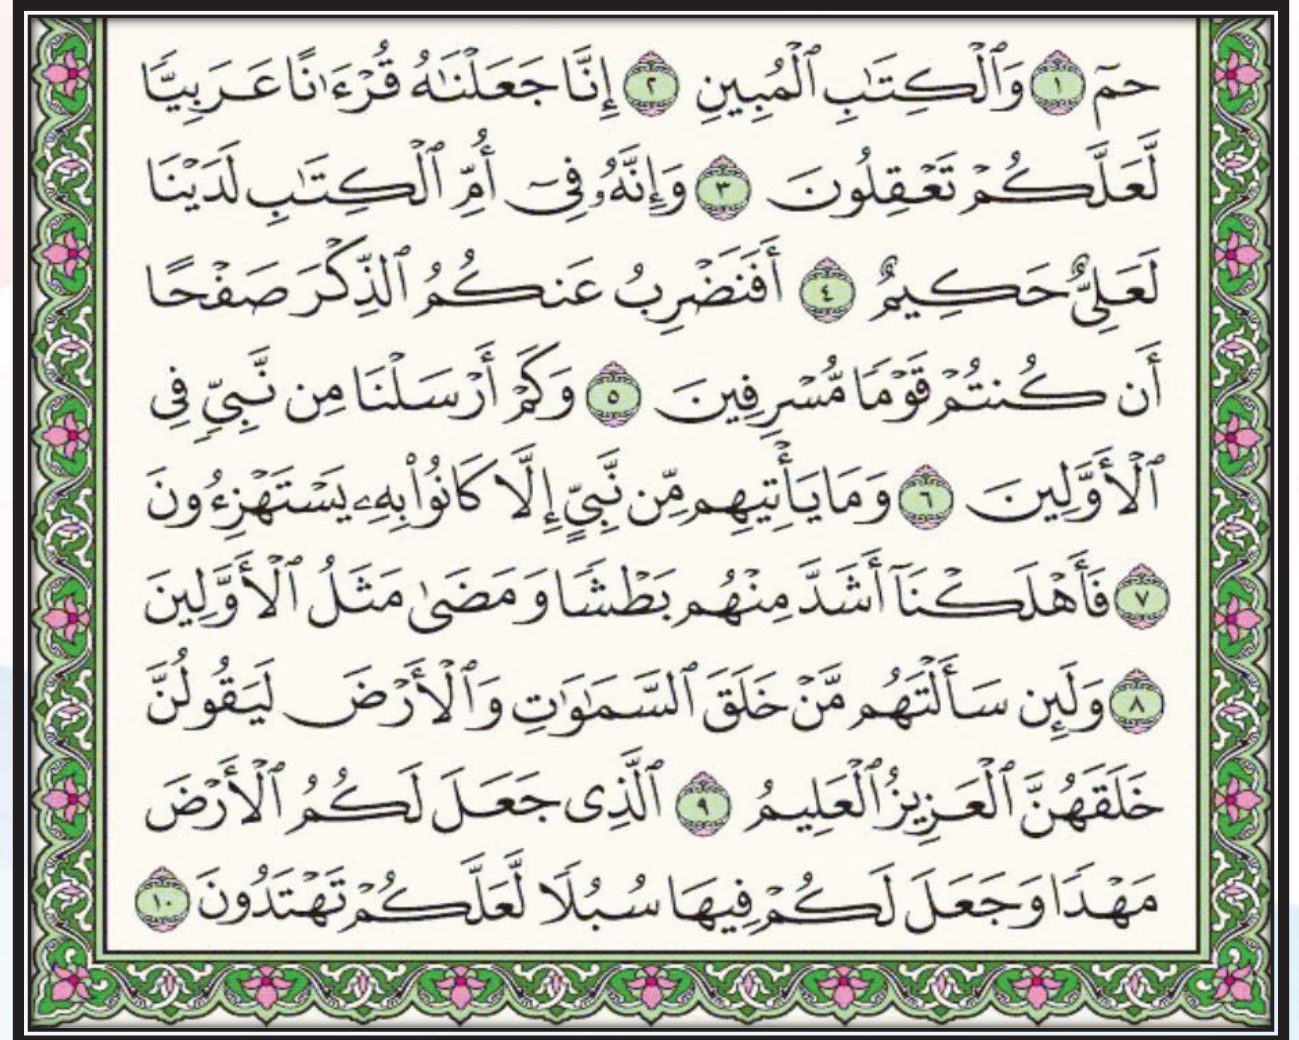 حمٓ ١ وَٱلْكِتَٰبِ ٱلْمُبِينِ ٢ إِنَّا جَعَلْنَٰهُ قُرْءَٰنًا عَرَبِيًّا
لَّعَلَّكُمْ تَعْقِلُونَ ٣ وَإِنَّهُۥ فِىٓ أُمِّ ٱلْكِتَٰبِ لَدَيْنَا
لَعَلِىٌّ حَكِيمٌ ٤ أَفَنَضْرِبُ عَنكُمُ ٱلذِّكْرَ صَفْحًا
أَن كُنتُمْ قَوْمًا مُّسْرِفِينَ ٥ وَكَمْ أَرْسَلْنَا مِن نَّبِىٍّ فِى
ٱلْأَوَّلِينَ ٦ وَمَا يَأْتِيهِم مِّن نَّبِىٍّ إِلَّا كَانُوا۟ بِهِۦ يَسْتَهْزِءُونَ
٧ فَأَهْلَكْنَآ أَشَدَّ مِنْهُم بَطْشًا وَمَضَىٰ مَثَلُ ٱلْأَوَّلِينَ
٨ وَلَئِن سَأَلْتَهُم مَّنْ خَلَقَ ٱلسَّمَٰوَٰتِ وَٱلْأَرْضَ لَيَقُولُنَّ
خَلَقَهُنَّ ٱلْعَزِيزُ ٱلْعَلِيمُ ٩ ٱلَّذِى جَعَلَ لَكُمُ ٱلْأَرْضَ
مَهْدًا وَجَعَلَ لَكُمْ فِيهَا سُبُلًا لَّعَلَّكُمْ تَهْتَدُونَ ١٠